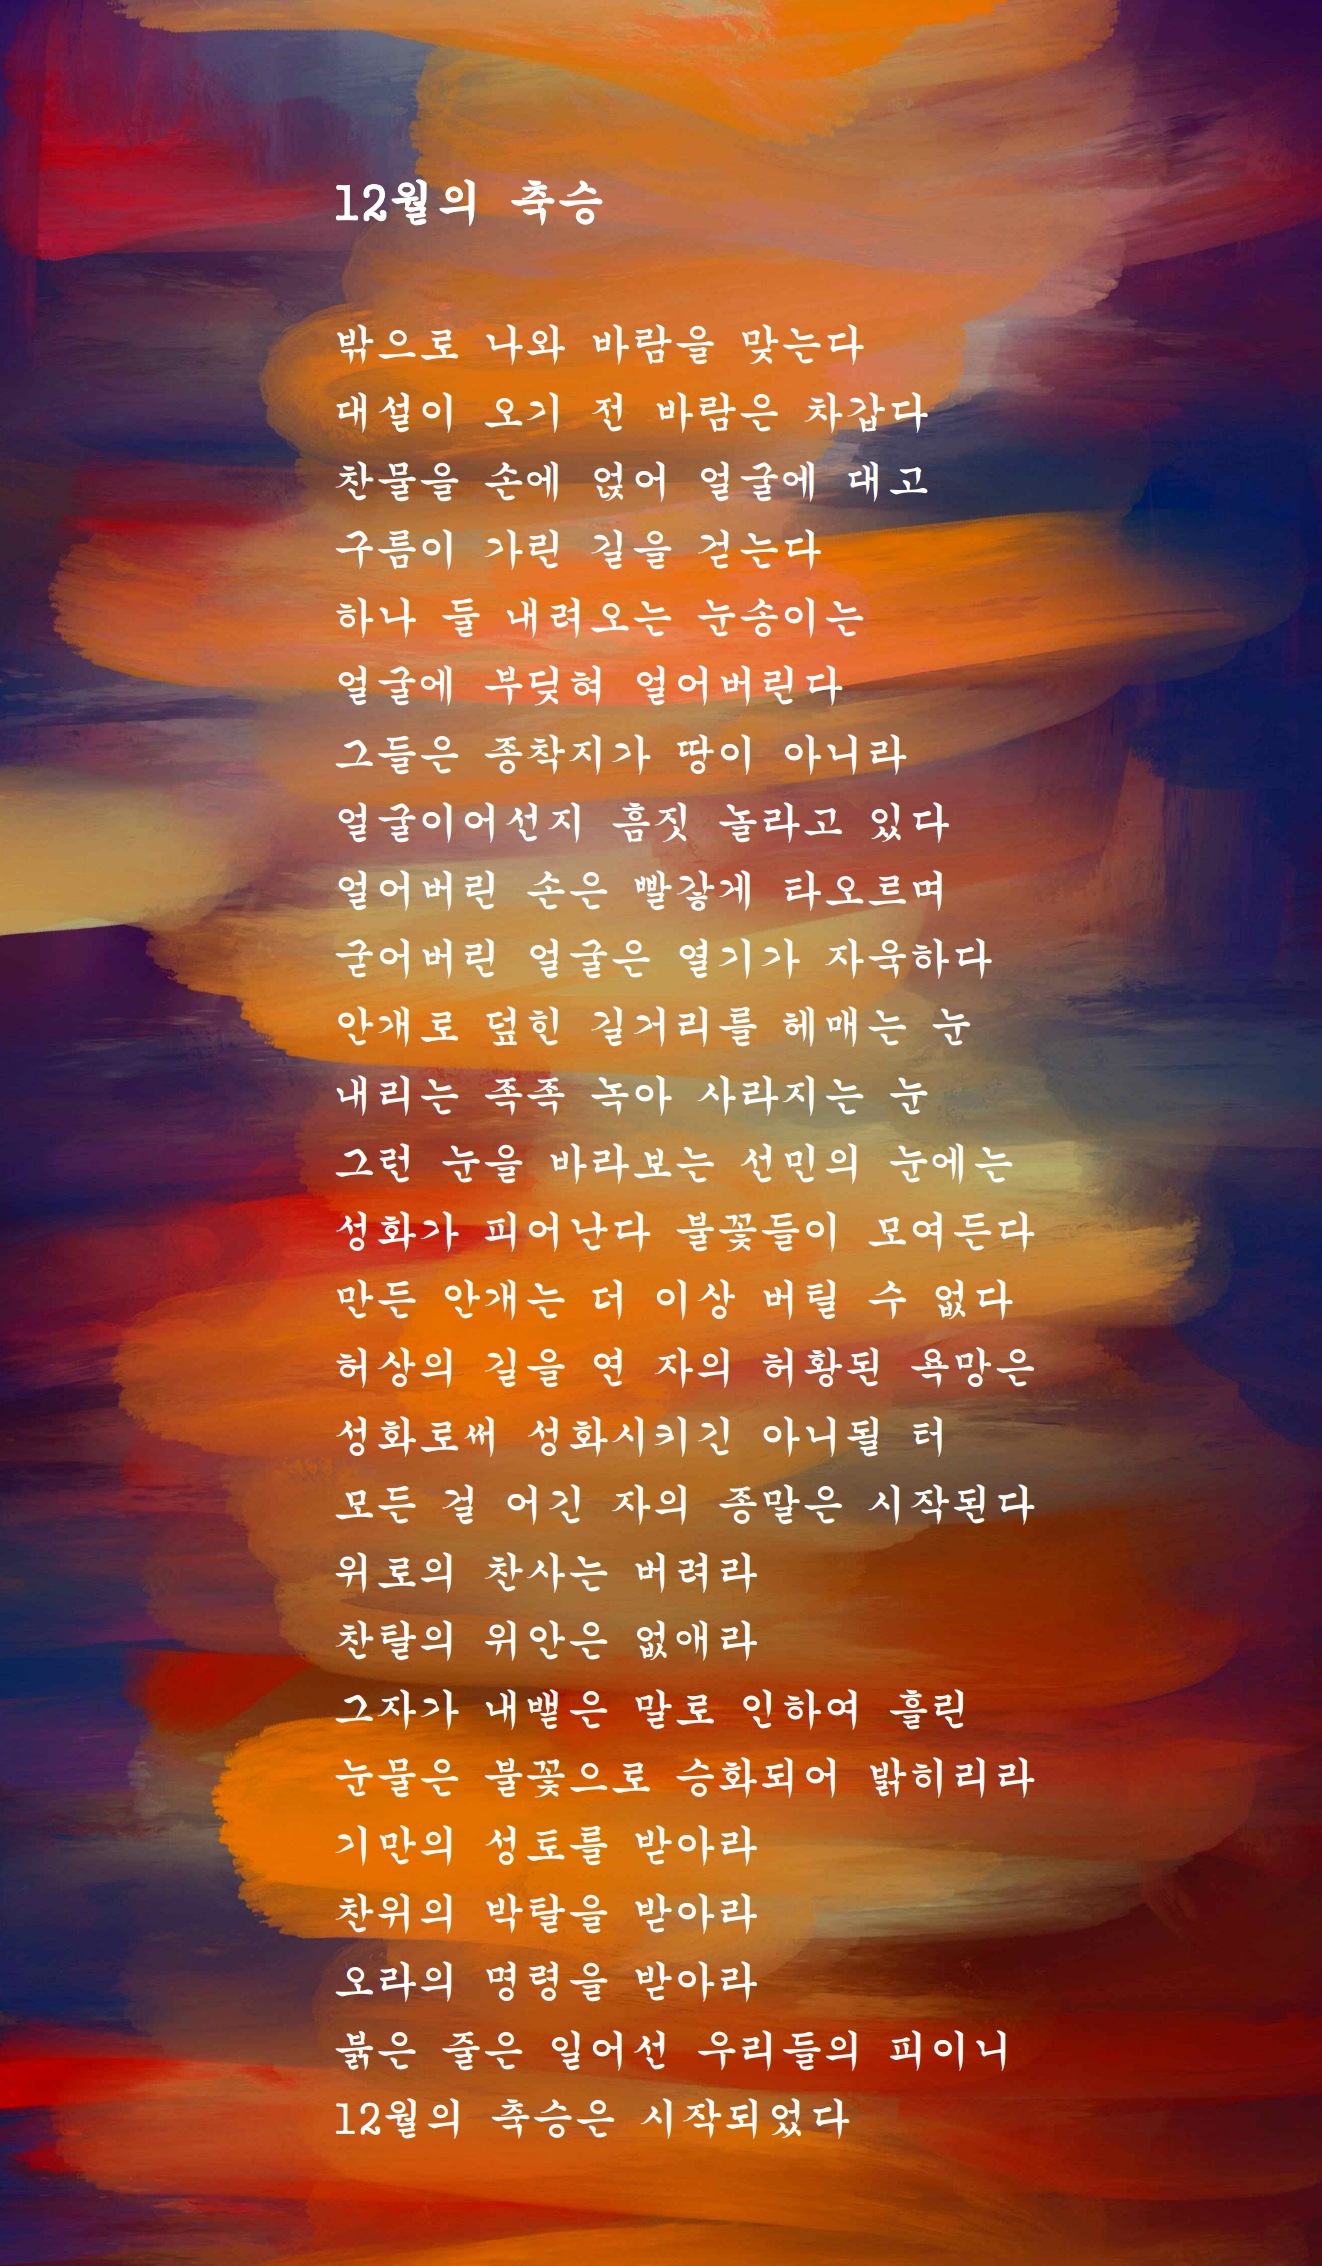 12월의 축승
밖으로 나와 바람을 맞는다
대설이 오기 전 바람은 차갑다
찬물을 손에 얹어 얼굴에 대고
구름이 가린 길을 걷는다
하나 둘 내려오는 눈송이는
얼굴에 부딪혀 얼어버린다
그들은 종착지가 땅이 아니라
얼굴이어선지 흠짓 놀라고 있다
얼어버린 손은 빨갛게 타오르며
굳어버린 얼굴은 열기가 자욱하다
안개로 덮힌 길거리를 헤매는 눈
내리는 족족 녹아 사라지는 눈
그런 눈을 바라보는 선민의 눈에는
성화가 피어난다 불꽃들이 모여든다
만든 안개는 더 이상 버틸 수 없다
허상의 길을 연 자의 허황된 욕망은
성화로써 성화시키긴 아니될 터
모든 걸 어긴 자의 종말은 시작된다
위로의 찬사는 버려라
찬탈의 위안은 없애라
그자가 내뱉은 말로 인하여 흘린
눈물은 불꽃으로 승화되어 밝히리라
기만의 성토를 받아라
찬위의 박탈을 받아라
오라의 명령을 받아라
붉은 줄은 일어선 우리들의 피이니
12월의 축승은 시작되었다